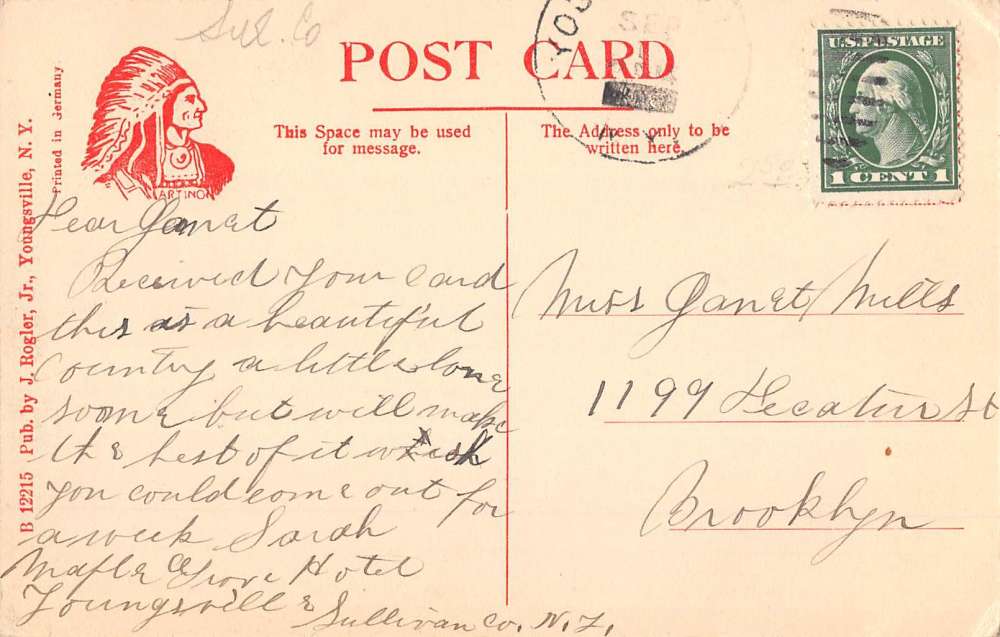 Sul. Co
POST CARD
This Space may be used
for message.
The Address only to be
written here.
U.S. POSTAGE
1 CENT 1
SEP
YOU
N. Y.
B 12215 Pub. by J. Rogler, Jr., Youngsville, N. Y.
Printed in Germany.
ARTINO
Dear Janet
Received your card
this is a beautiful
Country a little lone
some but will make
the best of it wish
you could come out for
a week Sarah
Maple Grove Hotel
Youngsville
Sullivan Co. N.Y.
Miss Janet Mills
1199 Decatur St
Brooklyn